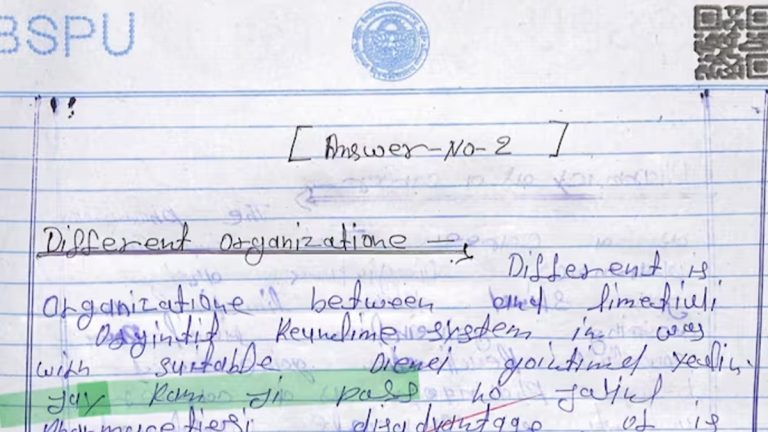 BSPU
[Answer-No-2]
Different organizatione
Different is
organizatione between and limetiuli
Orgintit Keundime system in was
with suitable Dienel gointimel
Jay Ram Ji pass ho jayiul
disadvantage of is